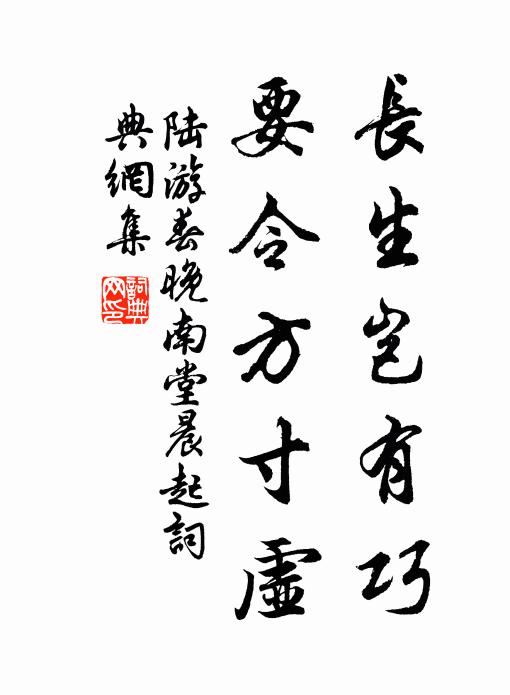 長生豈有巧
要令方寸虛
陸游春晚南堂晨起詞
典網集
詞典
网印